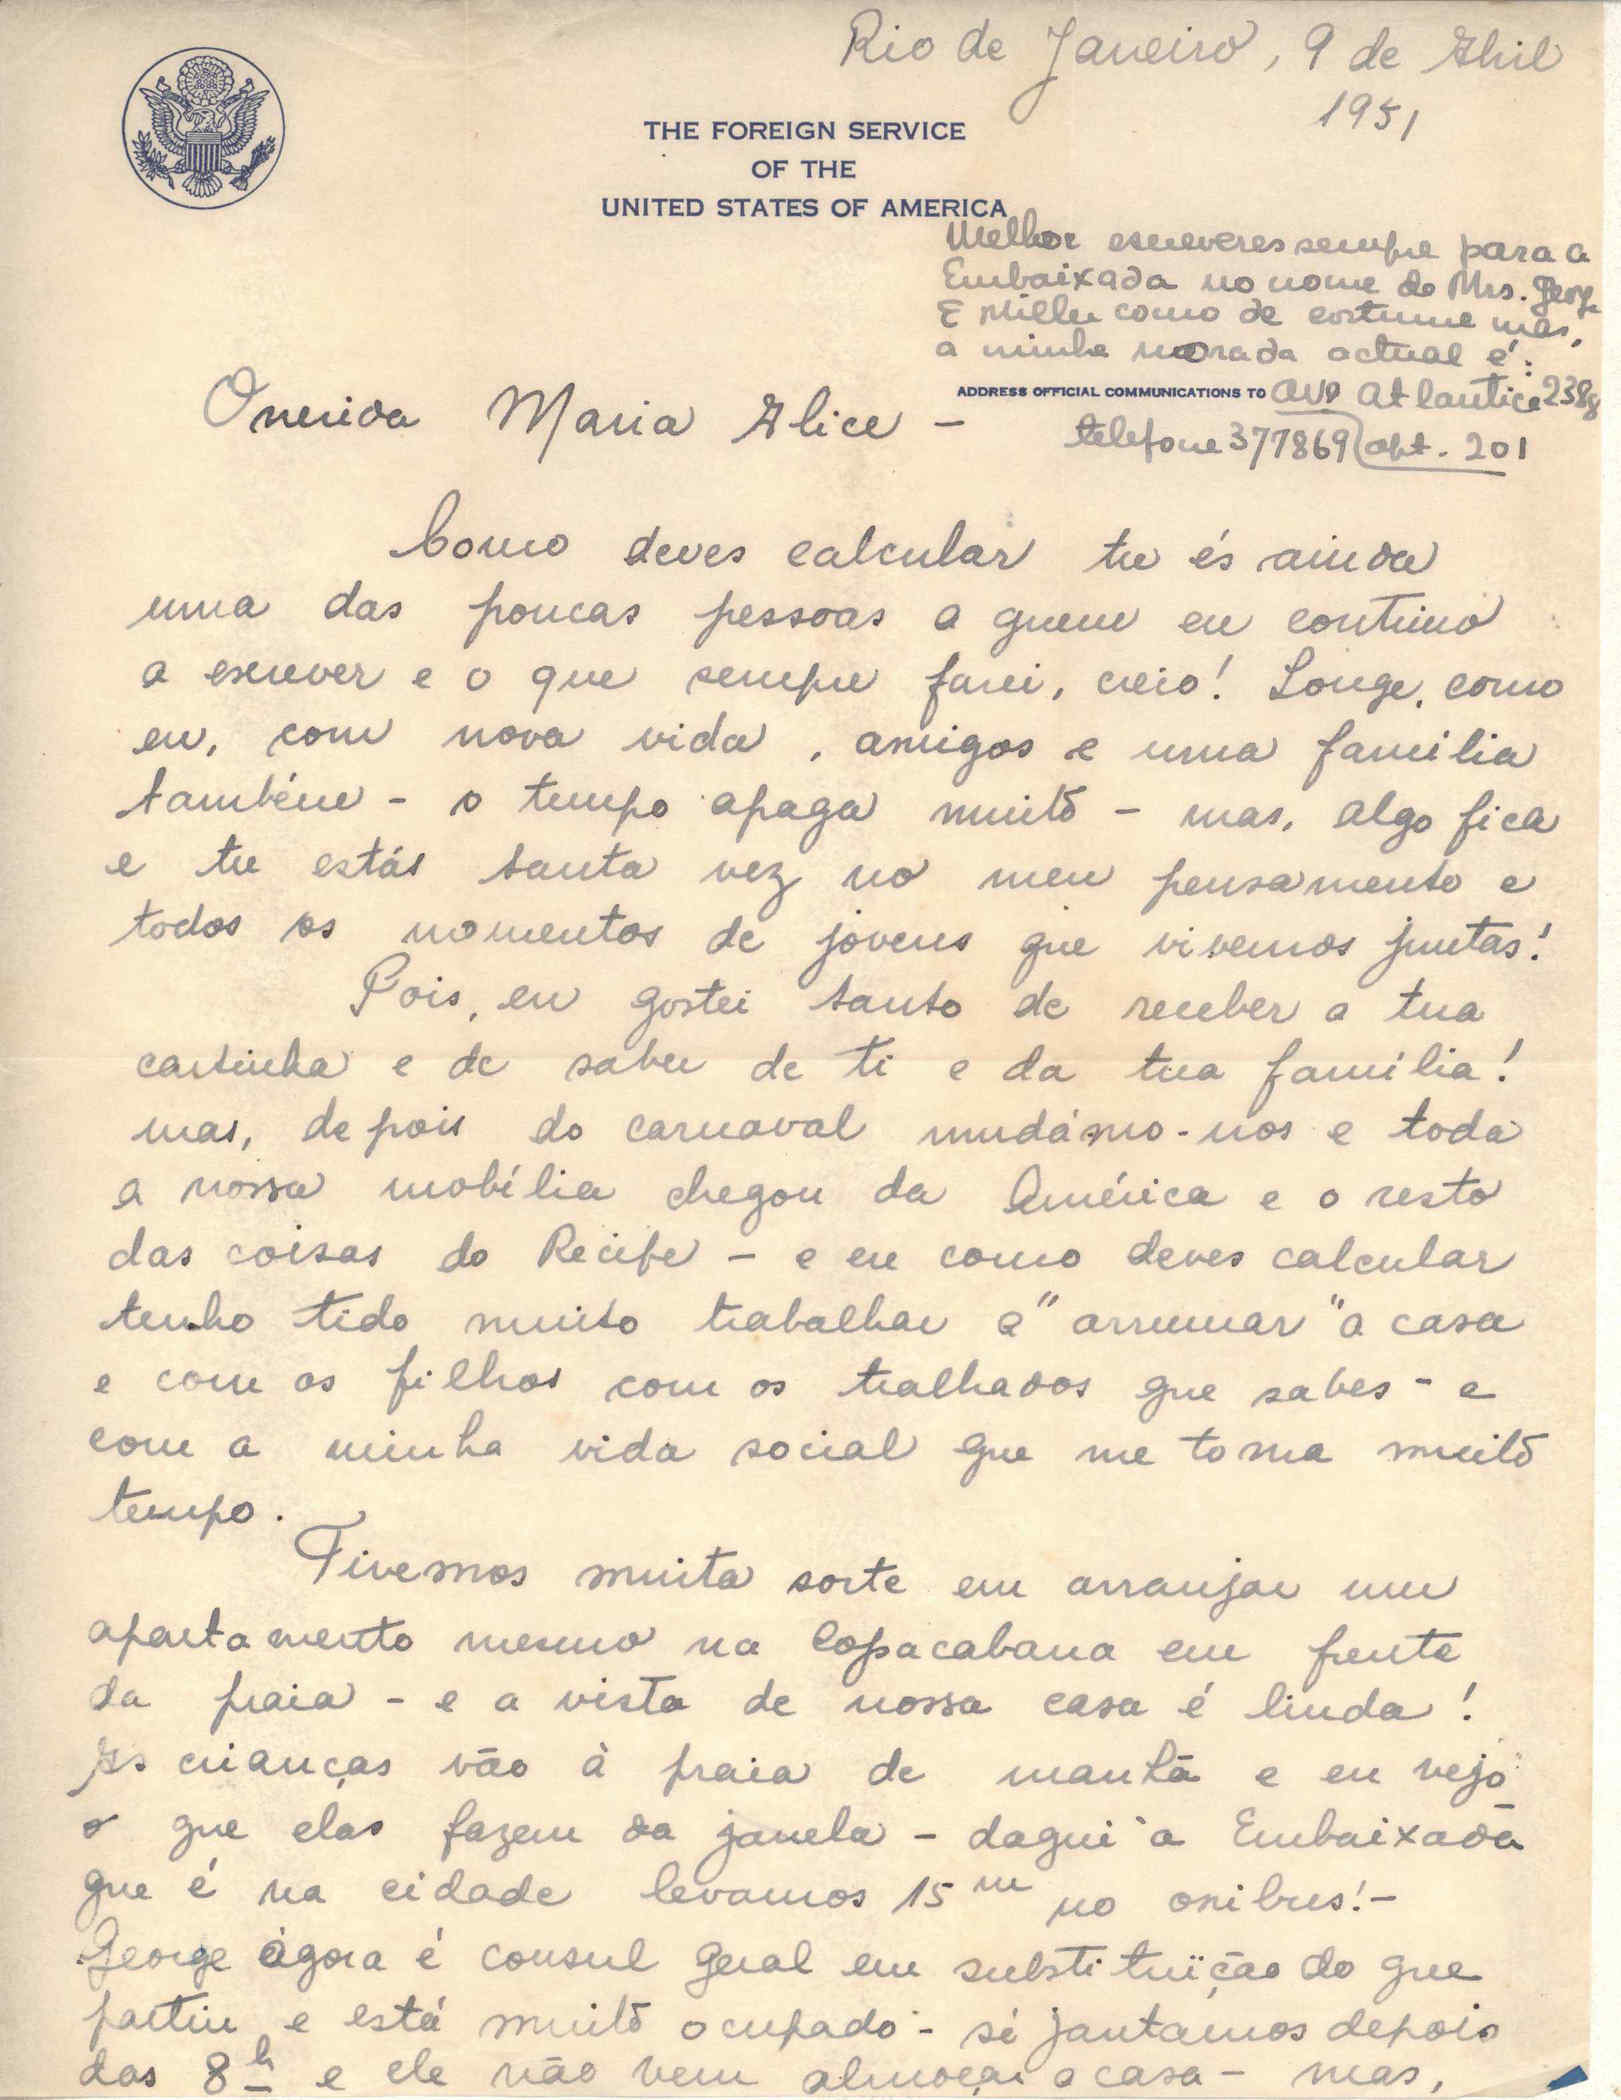 Rio de Janeiro, 9 de Abril
1951
THE FOREIGN SERVICE
OF THE
UNITED STATES OF AMERICA
Melhor escreveres sempre para a
Embaixada no nome de Mrs. George
E Miller como de costume mas,
a minha morada actual é:
ADDRESS OFFICIAL COMMUNICATIONS TO Avᵉ Atlantica 2388
telefone 377869 apt. 201
Querida Maria Alice -
Como deves calcular tu és ainda
uma das poucas pessoas a quem eu continuo
a escrever e o que sempre farei, creio! Longe, como
eu, com nova vida, amigos e uma familia
também - o tempo apaga muito - mas, algo fica
e tu estás tanta vez no meu pensamento e
todos os momentos de jovens que vivemos juntas!
Pois, eu gostei tanto de receber a tua
cartinha e de saber de ti e da tua família!
mas, depois do carnaval mudámo-nos e toda
a nossa mobília chegou da América e o resto
das coisas do Recife - e eu como deves calcular
tenho tido muito trabalhar a "arrumar" a casa
e com os filhos com os tralhados que sabes - e
com a minha vida social que me toma muito
tempo.
Tivemos muita sorte em arranjar um
apartamento mesmo na Copacabana em frente
da praia - e a vista de nossa casa é linda!
As crianças vão à praia de manhã e eu vejo
o que elas fazem da janela - daqui à Embaixada
que é na cidade levamos 15 m no onibus! -
George ágora é consul geral em substituïção do que
partiu e está muito ocupado - só jantamos depois
das 8h e ele não vem almoçar a casa - mas,